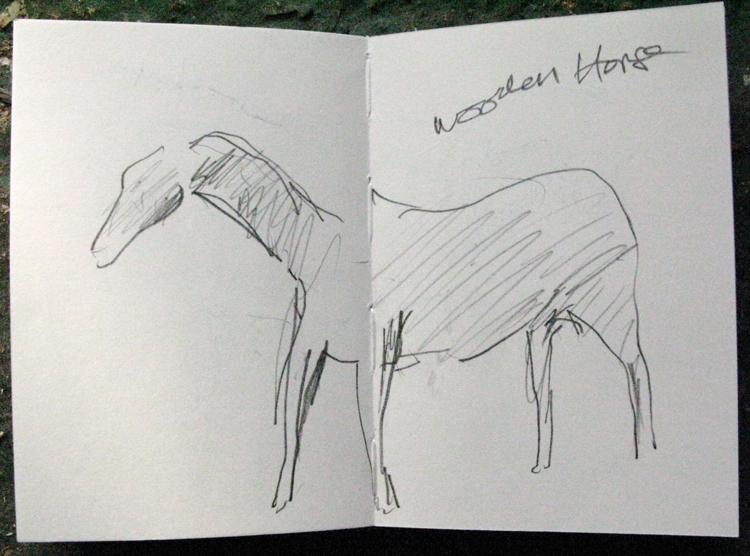 wooden Horse